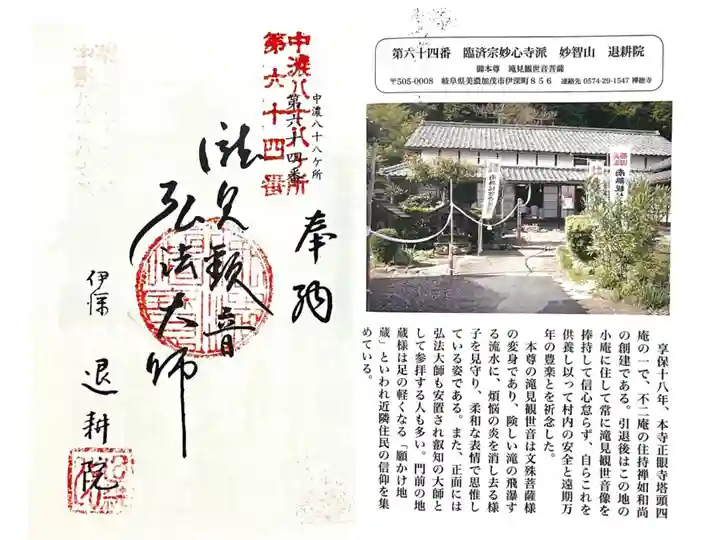 中濃八十八ヶ所
第六十四番
中濃八十八ヶ所
第六十四番
奉納
滝見観音
弘法大師
伊深 退耕院
第六十四番 臨済宗妙心寺派 妙智山 退耕院
御本尊 滝見観世音菩薩
〒505-0008 岐阜県美濃加茂市伊深町856 連絡先 0574-29-1547 禅徳寺
享保十八年、本寺正眼寺塔頭四
庵の一で、不二庵の住持禅如和尚
の創建である。引退後はこの地の
小庵に住して常に滝見観世音像を
捧持して信心怠らず、自らこれを
供養し以って村内の安全と遠期万
年の豊楽とを祈念した。
本尊の滝見観世音は文殊菩薩様
の変身であり、険しい滝の飛瀑す
る流水に、煩悩の炎を消し去る様
子を見守り、柔和な表情で思惟し
ている姿である。また、正面には
弘法大師も安置され叡知の大師と
して参拝する人も多い。門前の地
蔵様は足の軽くなる「願かけ地
蔵」といわれ近隣住民の信仰を集
めている。